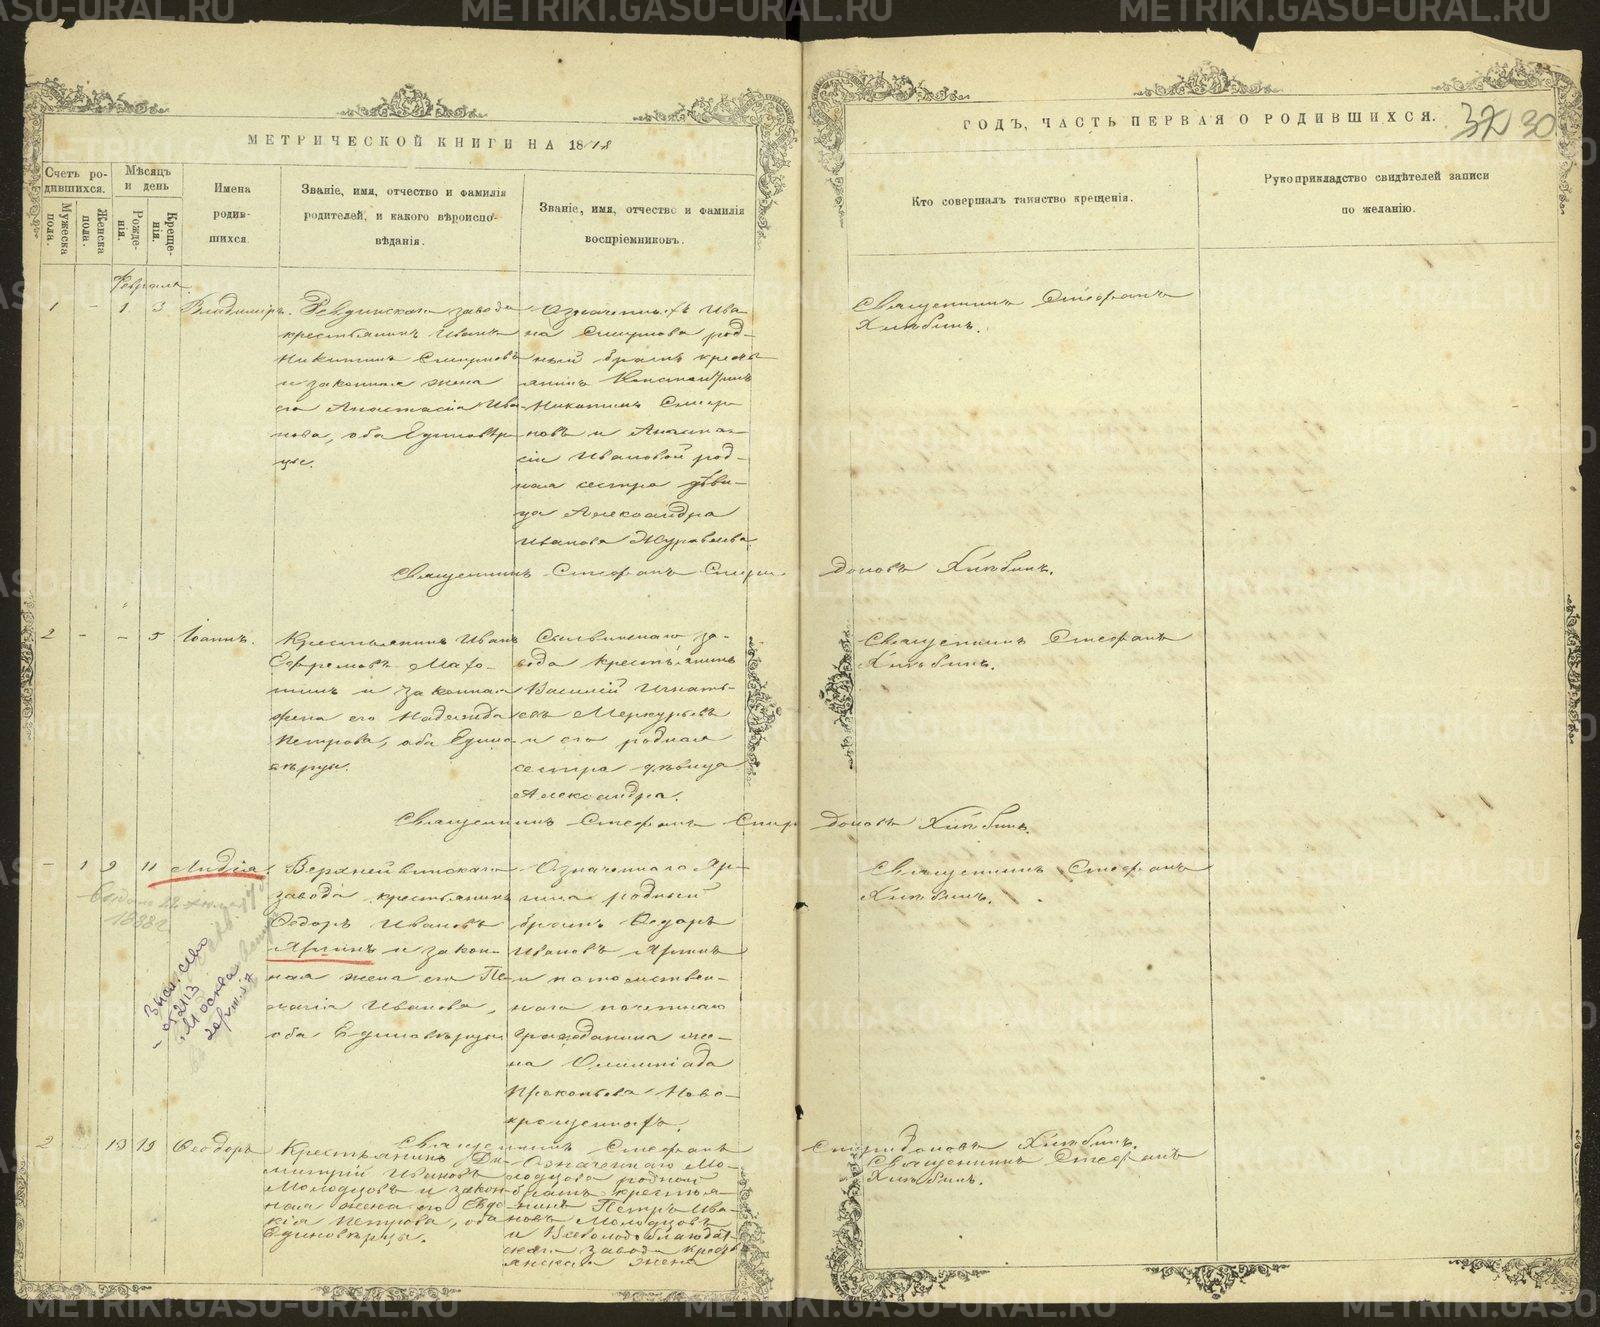 МЕТРИЧЕСКОЙ КНИГИ НА 1818
ГОДЪ, ЧАСТЬ ПЕРВАЯ О РОДИВШИХСЯ.
30
Счетъ ро-
дившихся.
Мужеска пола.
Женска пола.
Мѣсяцъ
и день
Рожде-
нія.
Креще-
нія.
Имена
родив-
шихся
Званіе, имя, отчество и фамилія
родителей, и какого вѣроиспо-
вѣданія.
Званіе, имя, отчество и фамилія
воспріемниковъ.
Кто совершалъ таинство крещенія.
Рукоприкладство свидѣтелей записи
по желанію.
Февраля
1 - 1 3 Владиміръ.
Ревдинскаго завода
крестьянинъ Иванъ
Никитинъ Смирновъ
и законная жена
его Анастасія Ива-
нова, оба Единовѣр-
цы.
Означеннаго Ива-
на Смирнова род-
ный братъ кресть-
янинъ Константинъ
Никитинъ Смир-
новъ и Анаста-
сіи Ивановой род-
ная сестра дѣви-
ца Александра
Иванова Журавлева.
Священникъ Стефанъ
Хлѣбинъ.
Священникъ Стефанъ Спири
доновъ Хлѣбинъ.
2 - - 5 Іоаннъ.
Крестьянинъ Иванъ
Ефремовъ
и законная
жена его Надежда
Петрова, оба Едино-
вѣрцы.
завода крестьянинъ
Василій Игнать-
евъ Меркурьевъ
и его родная
сестра дѣвица
Александра.
Священникъ Стефанъ
Хлѣбинъ.
Священникъ Стефанъ Спири
доновъ Хлѣбинъ.
- 1 9 11 Лидія.
Верхнейвинскаго
завода крестьянинъ
Ѳедоръ Ивановъ
Яргинъ и закон-
ная жена его Пе-
лагія Иванова,
оба Единовѣрцы
Означеннаго Яр-
гина родный
братъ Ѳедоръ
Ивановъ Яргинъ
и потомствен-
наго почетнаго
гражданина же-
на Олимпіада
Прокопьева Ново-
крещенныхъ.
Священникъ Стефанъ
Хлѣбинъ.
Священникъ Стефанъ
Спиридоновъ Хлѣбинъ.
2 - 13 19 Ѳеодоръ
Крестьянинъ Ди-
митрій Ивановъ
Молодцовъ и закон-
ная жена его Евдо-
кія Петрова, оба
Единовѣрцы.
Означеннаго Мо-
лодцова родной
братъ крестья-
нинъ Петръ Ива-
новъ Молодцовъ
и Всеволодоблагодат-
скаго завода кресть-
янская жена
Священникъ Стефанъ
Хлѣбинъ.
METRIKI.GASO-URAL.RU